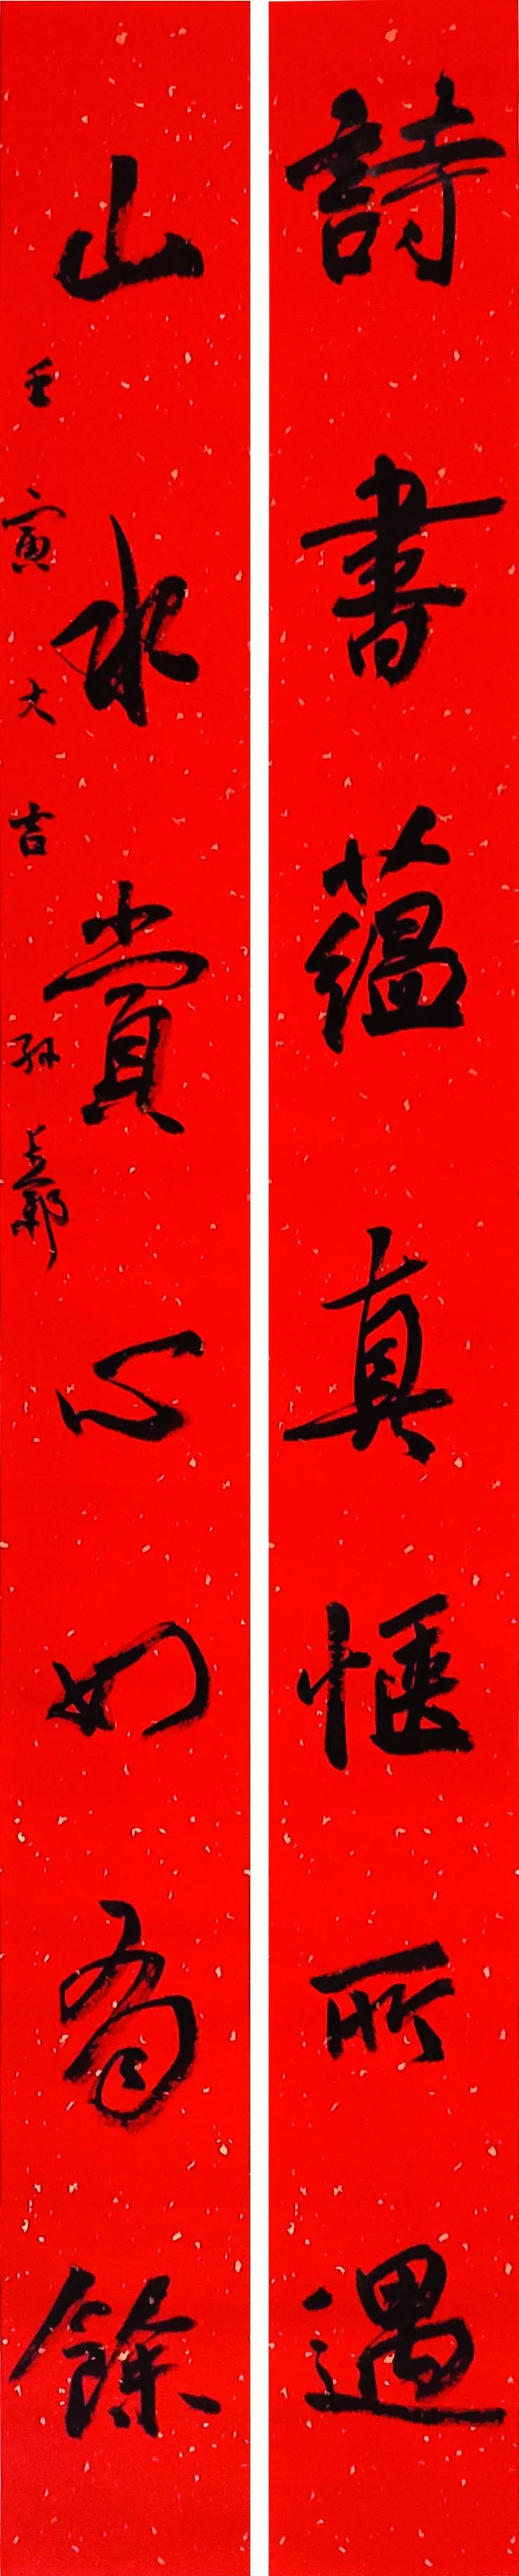 詩書蘊真愜所遇
山水賞心如有餘
壬寅大吉 孫